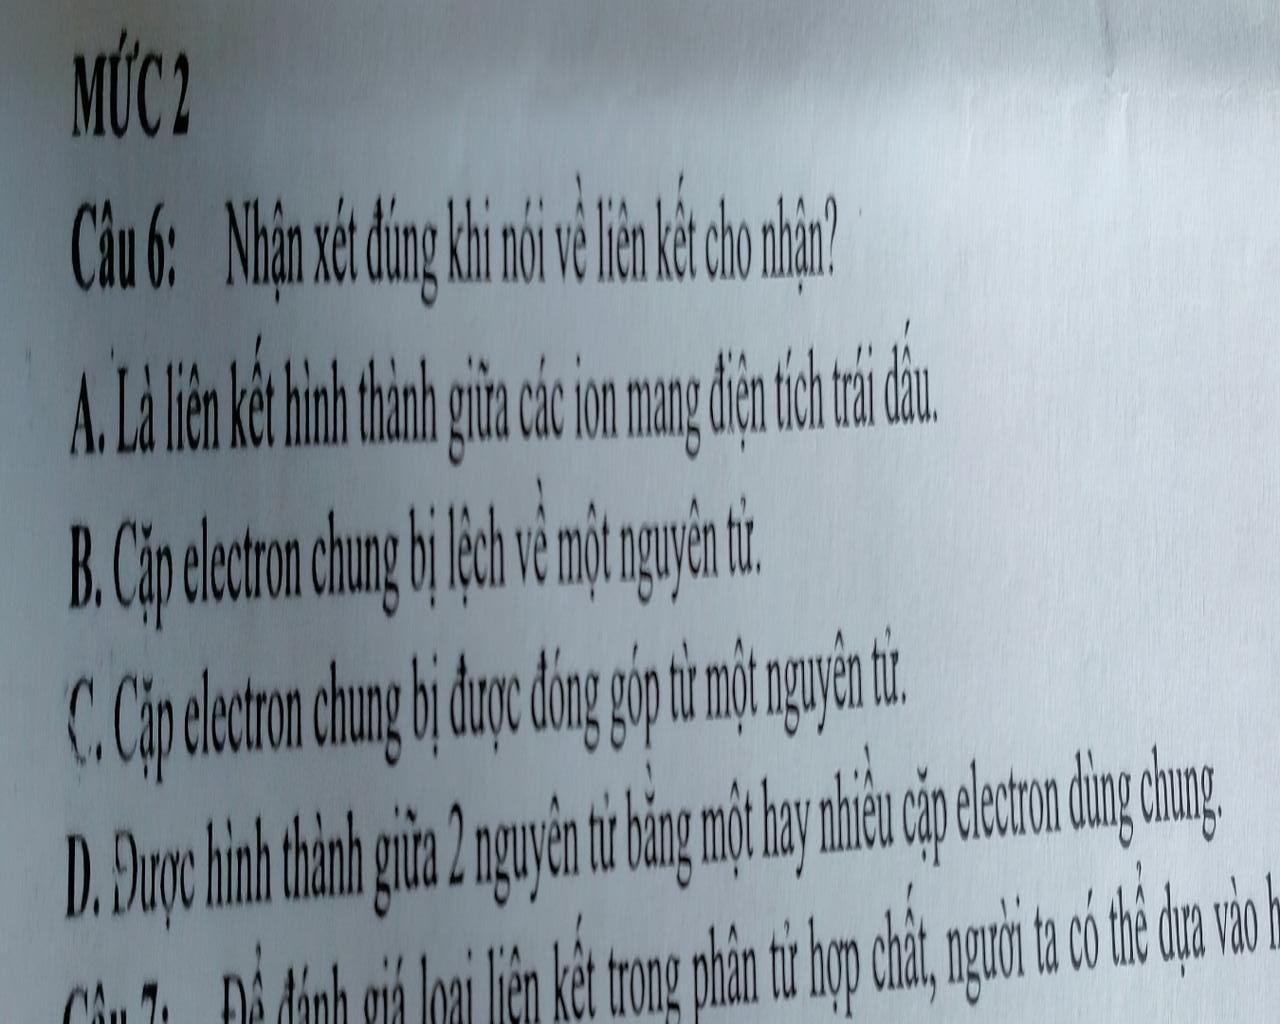 MỨC 2
Câu 6: Nhận xét đúng khi nói về liên kết cho nhận?
A. Là liên kết hình thành giữa các ion mang điện tích trái dấu.
B. Cặp electron chung bị lệch về một nguyên tử.
C. Cặp electron chung bị được đóng góp từ một nguyên tử.
D. Được hình thành giữa 2 nguyên tử bằng một hay nhiều cặp electron dùng chung.
Câu 7: Để đánh giá loại liên kết trong phân tử hợp chất, người ta có thể dựa vào